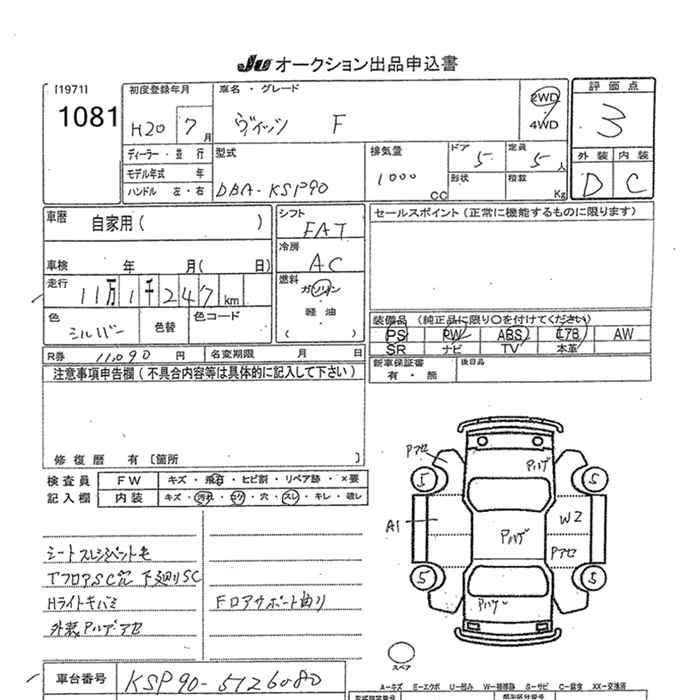 JU オークション出品申込書
[1971]
1081
初度登録年月
H20 7月
車名・グレード
ヴィッツ F
2WD
4WD
評価点
3
外装 内装
D C
ディーラー・並行
モデル年式 年
ハンドル 左・右
型式
DBA-KSP90
排気量
1000 CC
ドア 5
定員 5人
形状
積載 Kg
車歴 自家用( )
車検 年 月( 日)
シフト FAT
冷房 AC
セールスポイント(正常に機能するものに限ります)
走行 11万1千247km
燃料 ガソリン
・
軽油
色 シルバー
色替
色コード
装備品 (純正品に限り○を付けてください)
PS PW ABS エアB AW
SR ナビ TV 本革
R券 11,090 円 名変期限 月 日
新車保証書
有・無
後日品
注意事項申告欄(不具合内容等は具体的に記入して下さい)
修復歴 有〔箇所 〕
検査員 FW キズ・飛石・ヒビ割・リペア跡・×要
記入欄 内装 キズ・汚れ・コゲ・穴・スレ・キレ・破レ
シートスレ
TフロアSC 下廻りSC
Hライトキバミ
Fロアサポート曲り
外装Pハゲ アセ
Pアセ
Pハゲ
5 5
A1 Pハゲ W2
Pアセ
5 5
Pハゲ
スペア
A-キズ E-エクボ U-凹み W-補修跡 S-サビ C-腐食 XX-交換済
車台番号 KSP90-5126080